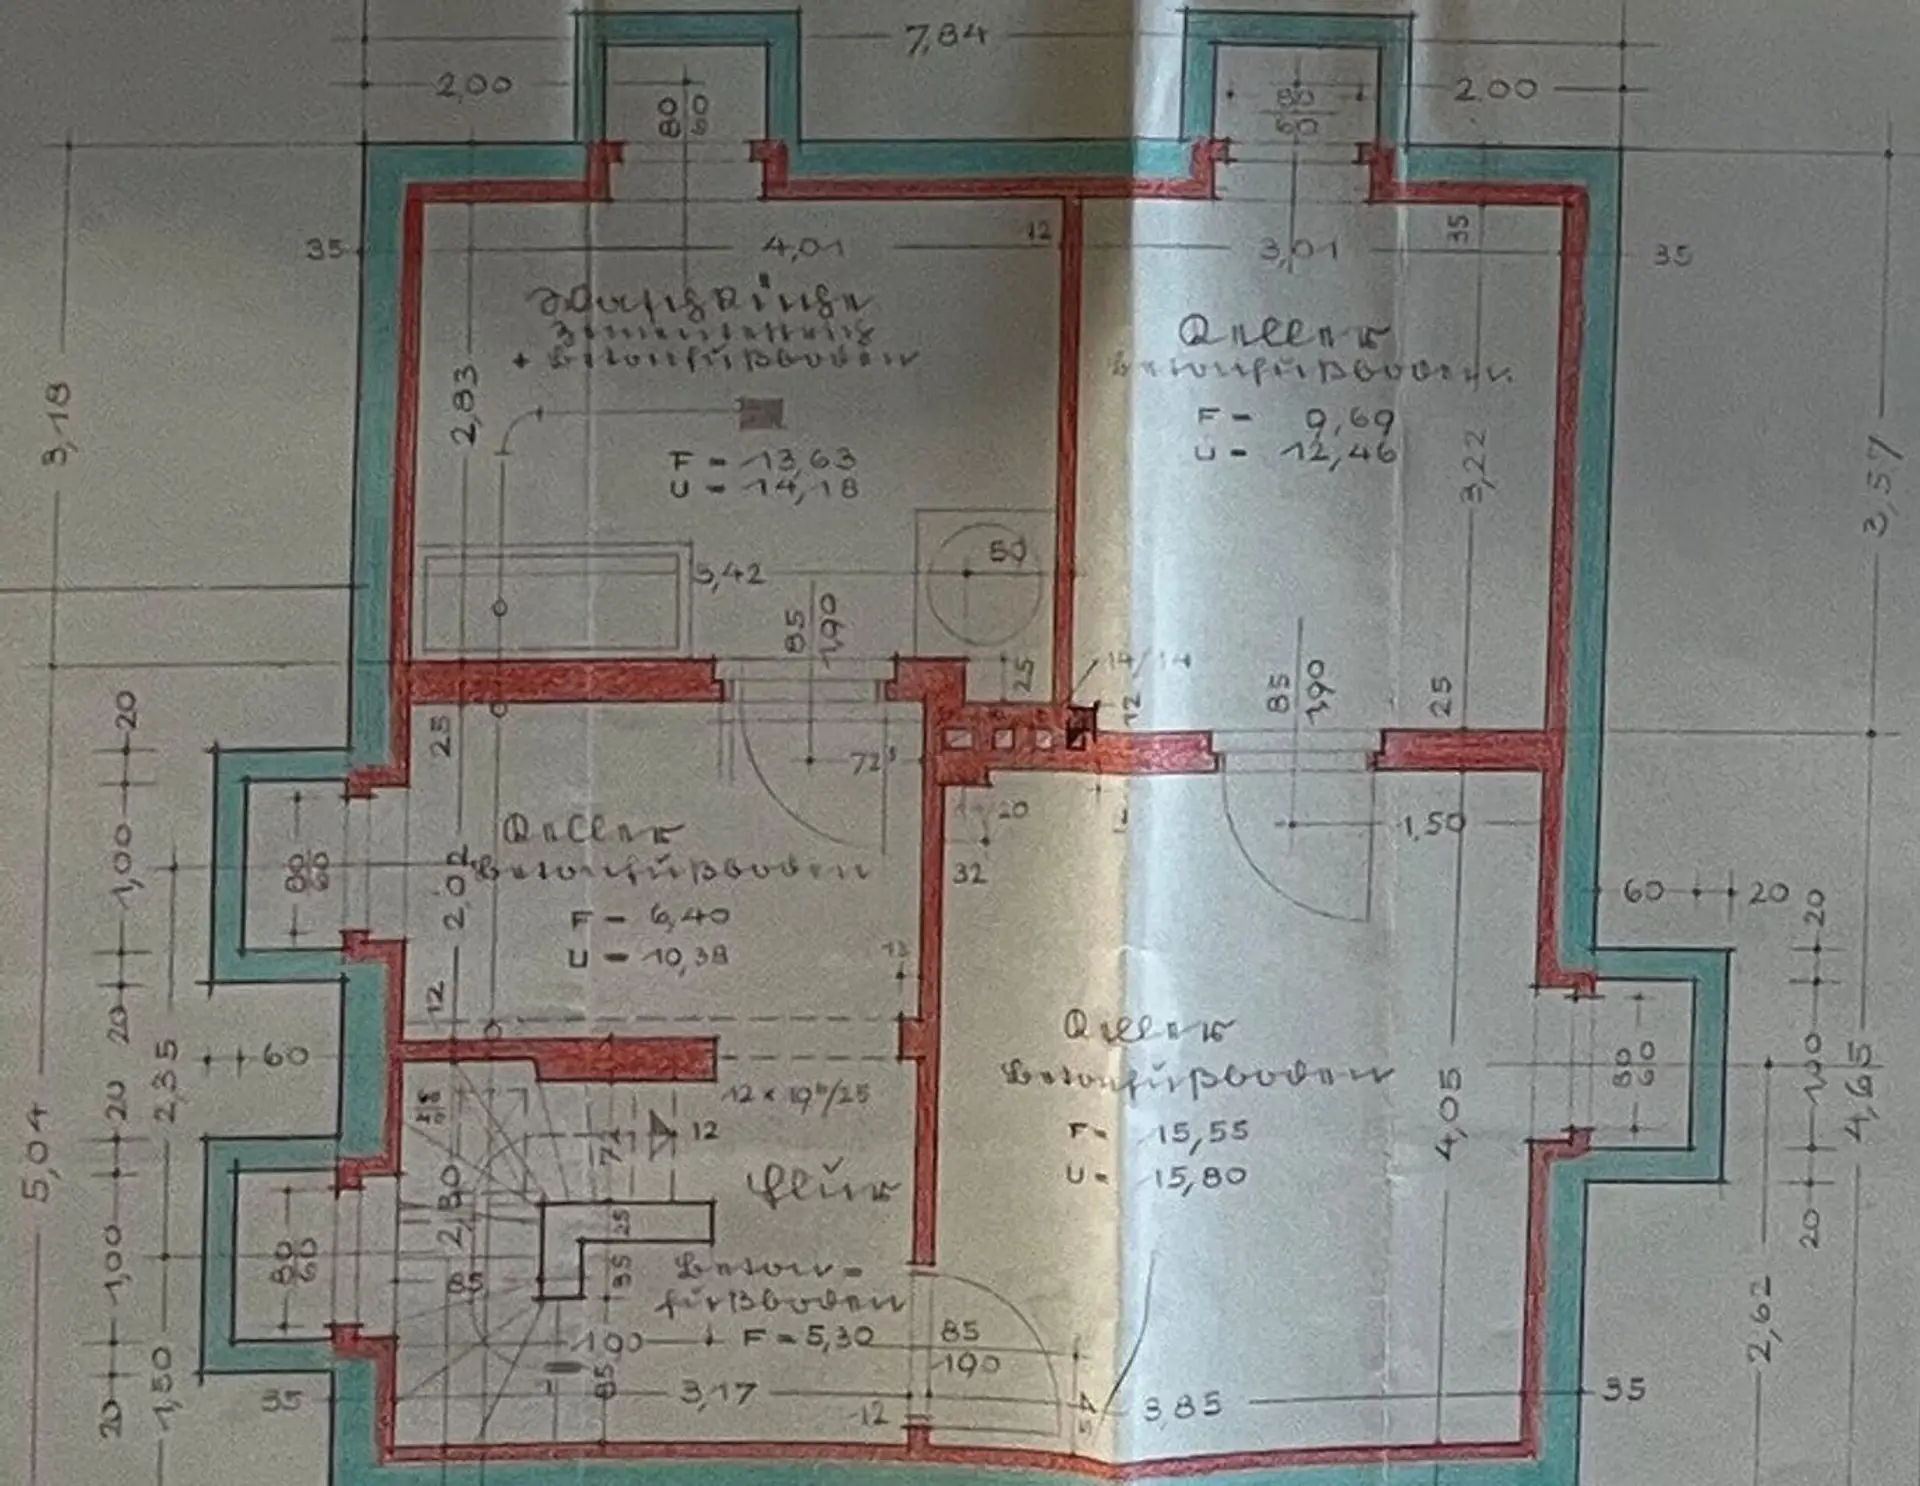 7,84
2,00
80
60
80
60
2.00
35
4,01
12
3,01
35
35
Waschküche
Zementestrich
+ Betonfußboden
Keller
Betonfußboden
F = 9,69
U = 12,46
2,83
3,18
F = 13,63
U = 14,18
3,22
3,57
50
3,42
85
1,90
25
14/14
12
85
1,90
25
20
25
72⁵
20
32
1,50
1,00
80
60
2,02
Keller
Betonfußboden
F = 6,40
U = 10,38
60
20
20
13
12
20
60
2,35
Keller
Betonfußboden
F = 15,55
U = 15,80
4,05
80
60
1,00
4,65
20
12 x 19⁰/25
12
20
5,04
Flur
25
35
2,80
85
80
60
1,00
Beton=
fußboden
F = 5,30
1.00
85
1,90
85
3,17
12
3,85
35
35
1,50
20
2,62